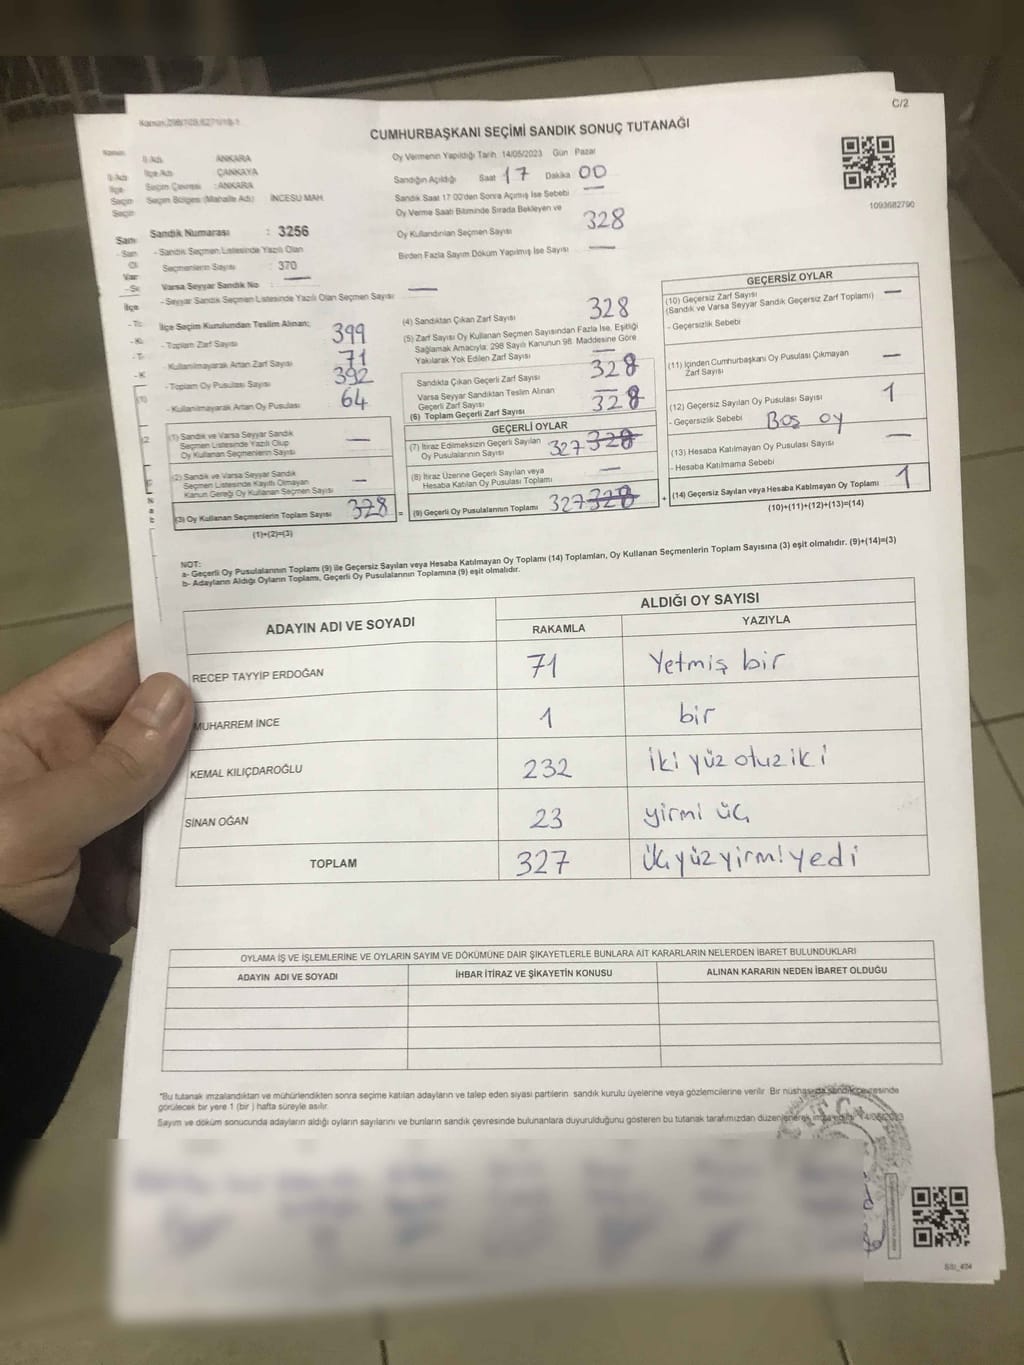 C/2
Kanun 298/109,6271/18-1
CUMHURBAŞKANI SEÇİMİ SANDIK SONUÇ TUTANAĞI
İl Adı ANKARA
İlçe Adı ÇANKAYA
Seçim Çevresi : ANKARA
Seçim Bölgesi (Mahalle Adı) İNCESU MAH.
Sandık Numarası : 3256
- Sandık Seçmen Listesinde Yazılı Olan
Seçmenlerin Sayısı : 370
Varsa Seyyar Sandık No : —
- Seyyar Sandık Seçmen Listesinde Yazılı Olan Seçmen Sayısı —
Oy Vermenin Yapıldığı Tarih 14/05/2023 Gün Pazar
Sandığın Açıldığı Saat 17 Dakika 00
Sandık Saat 17:00'den Sonra Açılmış İse Sebebi —
Oy Verme Saati Bitiminde Sırada Bekleyen ve
Oy Kullandırılan Seçmen Sayısı 328
Birden Fazla Sayım Döküm Yapılmış İse Sayısı —
1093682790
İlçe Seçim Kurulundan Teslim Alınan;
- Toplam Zarf Sayısı 399
- Kullanılmayarak Artan Zarf Sayısı 71
- Toplam Oy Pusulası Sayısı 392
- Kullanılmayarak Artan Oy Pusulası 64
(1) Sandık ve Varsa Seyyar Sandık
Seçmen Listesinde Yazılı Olup
Oy Kullanan Seçmenlerin Sayısı —
(2) Sandık ve Varsa Seyyar Sandık
Seçmen Listesinde Kayıtlı Olmayan
Kanun Gereği Oy Kullanan Seçmen Sayısı —
(3) Oy Kullanan Seçmenlerin Toplam Sayısı 328 =
(1)+(2)=(3)
(4) Sandıktan Çıkan Zarf Sayısı 328
(5) Zarf Sayısı Oy Kullanan Seçmen Sayısından Fazla İse, Eşitliği
Sağlamak Amacıyla; 298 Sayılı Kanunun 98. Maddesine Göre
Yakılarak Yok Edilen Zarf Sayısı —
Sandıkta Çıkan Geçerli Zarf Sayısı 328
Varsa Seyyar Sandıktan Teslim Alınan
Geçerli Zarf Sayısı —
(6) Toplam Geçerli Zarf Sayısı 328
GEÇERLİ OYLAR
(7) İtiraz Edilmeksizin Geçerli Sayılan
Oy Pusulalarının Sayısı 327 328
(8) İtiraz Üzerine Geçerli Sayılan veya
Hesaba Katılan Oy Pusulası Toplamı —
(9) Geçerli Oy Pusulalarının Toplamı 327 328 +
GEÇERSİZ OYLAR
(10) Geçersiz Zarf Sayısı —
(Sandık ve Varsa Seyyar Sandık Geçersiz Zarf Toplamı)
- Geçersizlik Sebebi
(11) İçinden Cumhurbaşkanı Oy Pusulası Çıkmayan
Zarf Sayısı —
(12) Geçersiz Sayılan Oy Pusulası Sayısı 1
- Geçersizlik Sebebi Boş oy
(13) Hesaba Katılmayan Oy Pusulası Sayısı —
- Hesaba Katılmama Sebebi
(14) Geçersiz Sayılan veya Hesaba Katılmayan Oy Toplamı 1
(10)+(11)+(12)+(13)=(14)
NOT:
a- Geçerli Oy Pusulalarının Toplamı (9) ile Geçersiz Sayılan veya Hesaba Katılmayan Oy Toplamı (14) Toplamları, Oy Kullanan Seçmenlerin Toplam Sayısına (3) eşit olmalıdır. (9)+(14)=(3)
b- Adayların Aldığı Oyların Toplamı, Geçerli Oy Pusulalarının Toplamına (9) eşit olmalıdır.
ADAYIN ADI VE SOYADI ALDIĞI OY SAYISI
RAKAMLA YAZIYLA
RECEP TAYYİP ERDOĞAN 71 Yetmiş bir
MUHARREM İNCE 1 bir
KEMAL KILIÇDAROĞLU 232 iki yüz otuz iki
SİNAN OĞAN 23 yirmi üç
TOPLAM 327 Üç yüz yirmi yedi
OYLAMA İŞ VE İŞLEMLERİNE VE OYLARIN SAYIM VE DÖKÜMÜNE DAİR ŞİKAYETLERLE BUNLARA AİT KARARLARIN NELERDEN İBARET BULUNDUKLARI
ADAYIN ADI VE SOYADI İHBAR İTİRAZ VE ŞİKAYETİN KONUSU ALINAN KARARIN NEDEN İBARET OLDUĞU
*Bu tutanak imzalandıktan ve mühürlendikten sonra seçime katılan adayların ve talep eden siyasi partilerin sandık kurulu üyelerine veya gözlemcilerine verilir. Bir nüshası da sandık çevresinde
görülecek bir yere 1 (bir) hafta süreyle asılır.
Sayım ve döküm sonucunda adayların aldığı oyların sayılarını ve bunların sandık çevresinde bulunanlara duyurulduğunu gösteren bu tutanak tarafımızdan düzenlenerek imza edildi. 14/05/2023